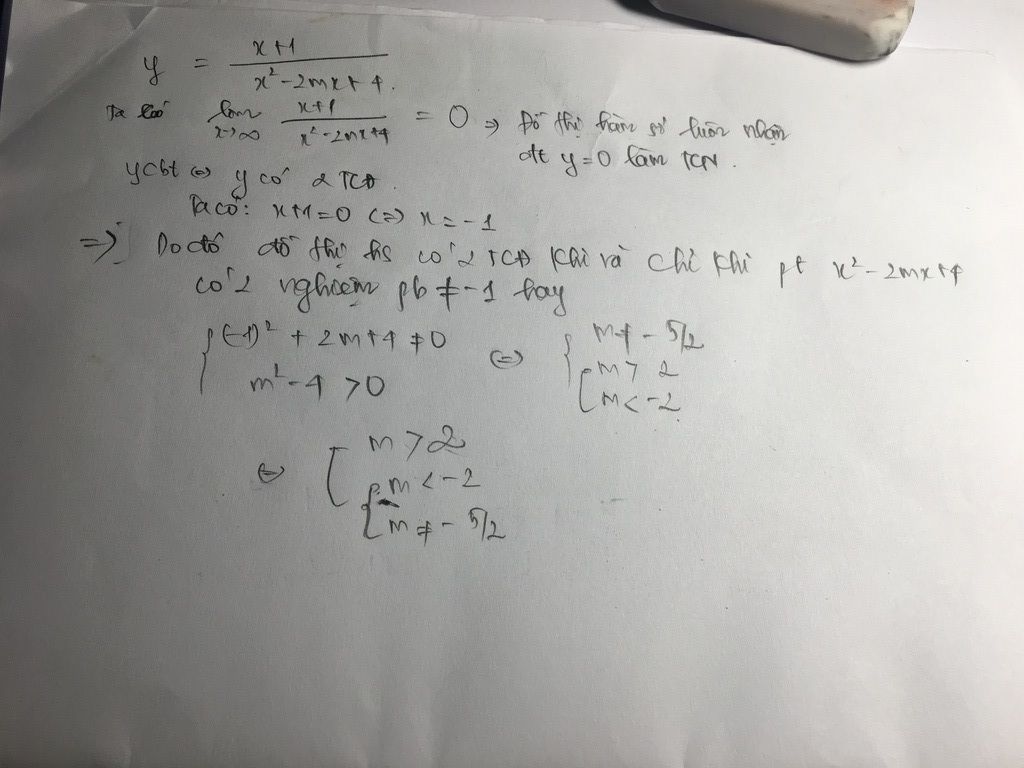 y = x+1 / x² - 2mx + 4.
Ta có lim x→∞ x+1 / x² - 2mx + 4 = 0 ⇒ Đồ thị hàm số luôn nhận
đt y = 0 làm TCN.
ycbt ⇔ y có 2 TCĐ.
Ta có: x+1 = 0 ⇔ x = -1
⇒ Do đó đồ thị hs có 2 TCĐ khi và chỉ khi pt x² - 2mx + 4
có 2 nghiệm pb ≠ -1 hay
{ (-1)² + 2m + 4 ≠ 0 ⇔ { m ≠ - 5/2
m² - 4 > 0 [ m > 2
m < -2
⇔ [ m > 2
m < -2
{ m ≠ - 5/2